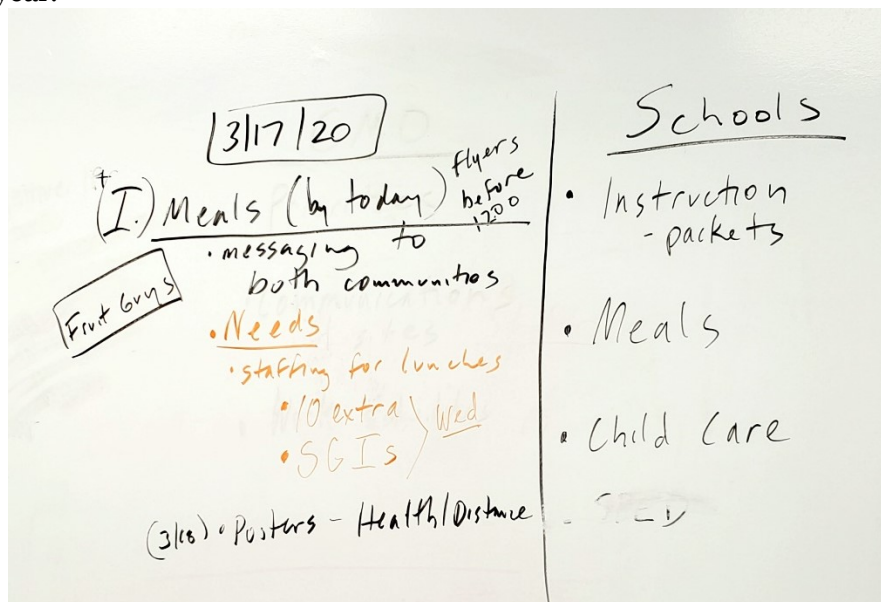 3/17/20
(I.) Meals (by today) flyers
before
1200
• messaging to
both communities
Fruit Guys
• Needs
• staffing for lunches
• 10 extra
• SGIs
Wed
(3/18) • Posters - Health/Distance
Schools
• Instruction
- packets
• Meals
• Child Care